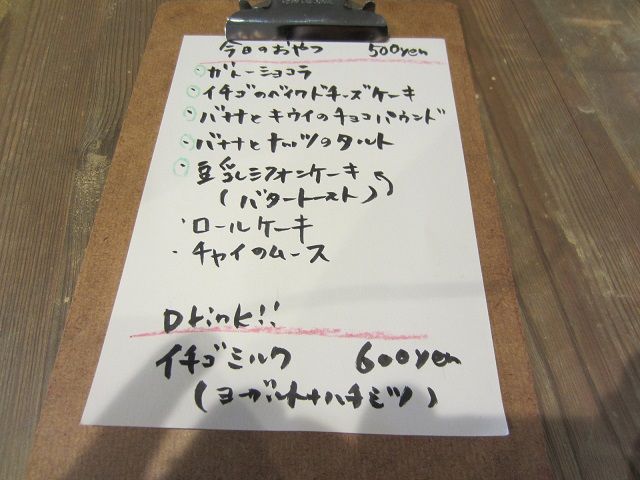 今日のおやつ 500yen
・ガトーショコラ
・イチゴのベイクドチーズケーキ
・バナナとキウイのチョコパウンド
・バナナとナッツのタルト
・豆乳シフォンケーキ
(バタートースト)
・ロールケーキ
・チャイのムース
Drink!!
イチゴミルク 600yen
(ヨーグルト+ハチミツ)